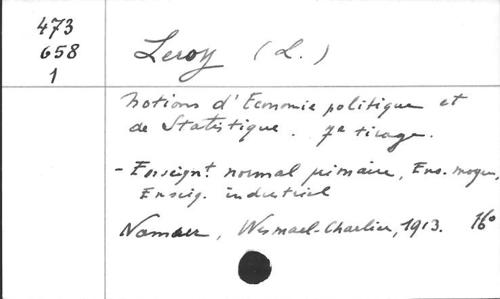 473
658
1
Leroy (L.)
Notions d'Economie politique et
de Statistique. 7e tirage.
- Enseignt normal primaire, Ens. moyen,
Enseig. industriel
Namur, Wesmael-Charlier, 1913. 16°